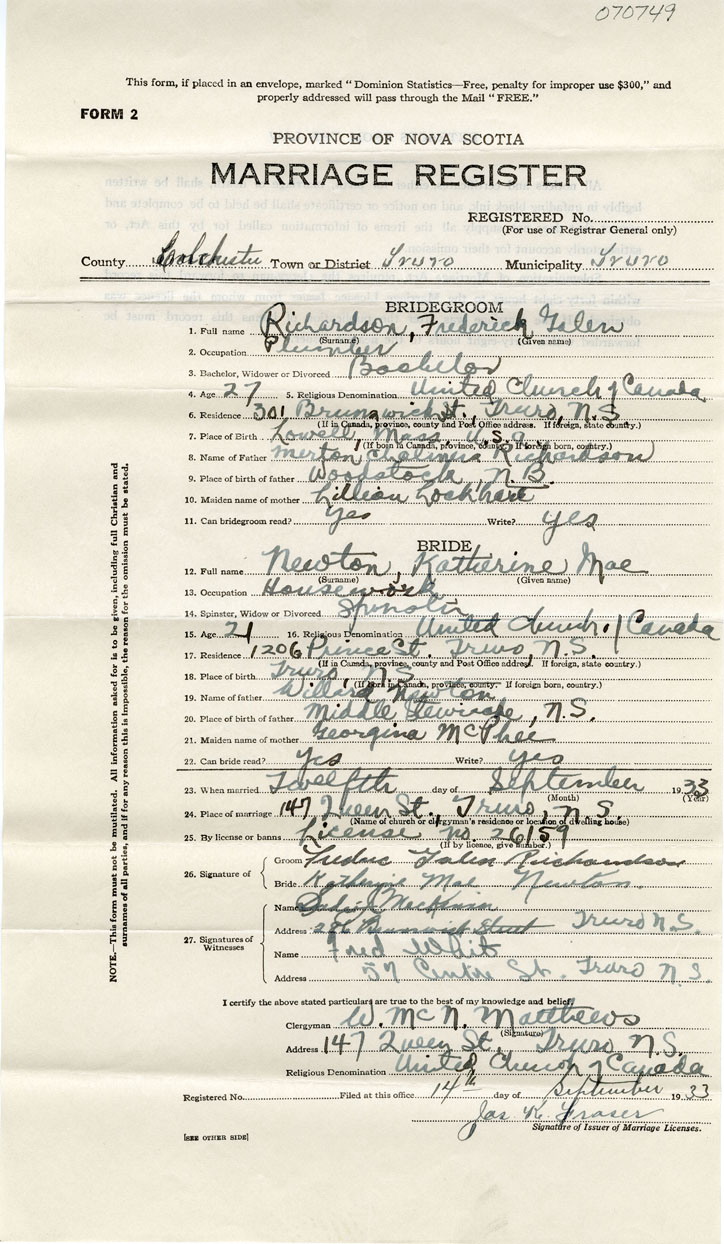 070749
This form, if placed in an envelope, marked "Dominion Statistics—Free, penalty for improper use $300," and
properly addressed will pass through the Mail "FREE."
FORM 2
PROVINCE OF NOVA SCOTIA
MARRIAGE REGISTER
REGISTERED No.
(For use of Registrar General only)
County Colchester Town or District Truro Municipality Truro
BRIDEGROOM
1. Full name Richardson, Frederick Galen
(Surname) (Given name)
2. Occupation Plumber
3. Bachelor, Widower or Divorced Bachelor
4. Age 27 5. Religious Denomination United Church of Canada
6. Residence 301 Brunswick St., Truro, N.S.
(If in Canada, province, county and Post Office address. If foreign, state country.)
7. Place of Birth Lowell, Mass. U.S.a.
(If born in Canada, province, county. If foreign born, country.)
8. Name of Father Merton Richardson
9. Place of birth of father Woodstock N.B.
10. Maiden name of mother Lillian Lockhart
11. Can bridegroom read? Yes Write? yes
BRIDE
12. Full name Newton, Katherine Mae
(Surname) (Given name)
13. Occupation Housework
14. Spinster, Widow or Divorced Spinster
15. Age 21 16. Religious Denomination United Church of Canada
17. Residence 1206 Prince St. Truro, N.S.
(If in Canada, province, county and Post Office address. If foreign, state country.)
18. Place of birth Truro, N.S.
(If born in Canada, province, county. If foreign born, country.)
19. Name of father Willard Newton
20. Place of birth of father Middle Stewiacke, N.S.
21. Maiden name of mother Georgina McPhee
22. Can bride read? Yes Write? yes
23. When married Twelfth day of September 1933
(Month) (Year)
24. Place of marriage 147 Queen St., Truro, N.S.
(Name of church or clergyman's residence or location of dwelling house)
25. By license or banns License no. 26159
(If by licence, give number.)
26. Signature of
Groom Galen Richardson
Bride Katherine Mae Newton
27. Signatures of
Witnesses
Name
Address Brunswick Street Truro N.S.
Name Fred White
Address 57 Centre St. Truro N.S.
I certify the above stated particulars are true to the best of my knowledge and belief,
Clergyman W. McN. Matthews
(Signature)
Address 147 Queen St., Truro, N.S.
Religious Denomination United Church of Canada
Registered No. Filed at this office 14th day of September 1933
Jas. K. Fraser
Signature of Issuer of Marriage Licenses.
[SEE OTHER SIDE]
NOTE.—This form must not be mutilated. All information asked for is to be given, including full Christian and
surnames of all parties, and if for any reason this is impossible, the reason for the omission must be stated.